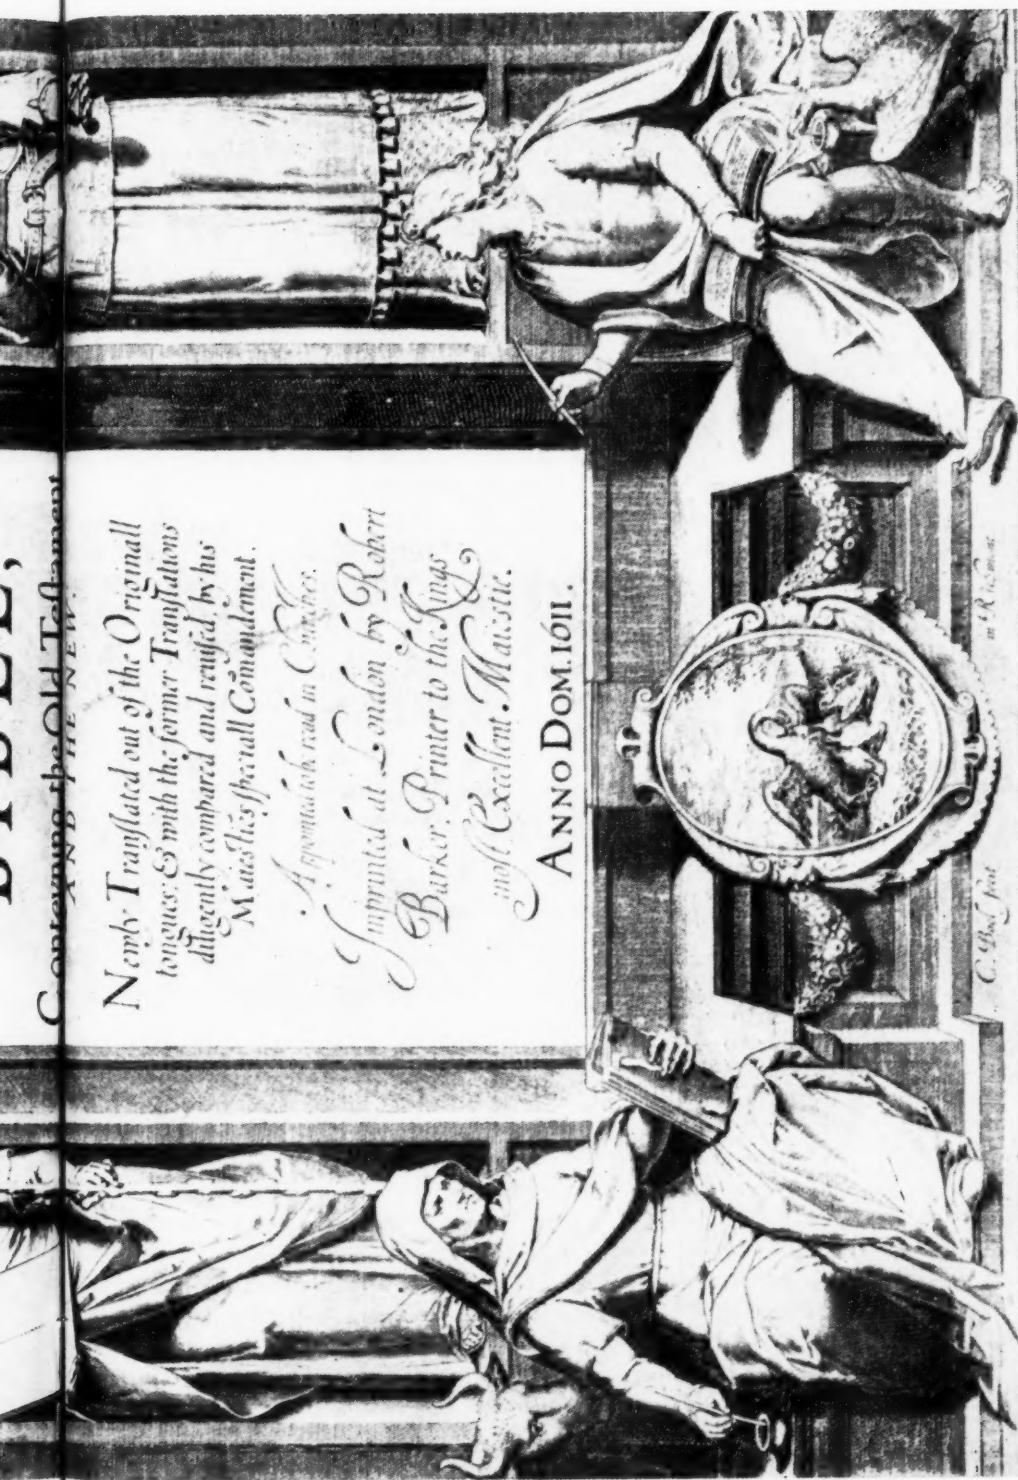 BIBLE,
Conteyning the Old Testament,
AND THE NEW.
Newly Translated out of the Originall
tongues: & with the former Translations
diligently compared and reuised, by his
Maiesties speciall Comandement.
Appointed to be read in Churches.
Imprinted at London by Robert
Barker, Printer to the Kings
most Excellent Maiestie.
ANNO DOM. 1611.
C. Boel fecit
in Richmont